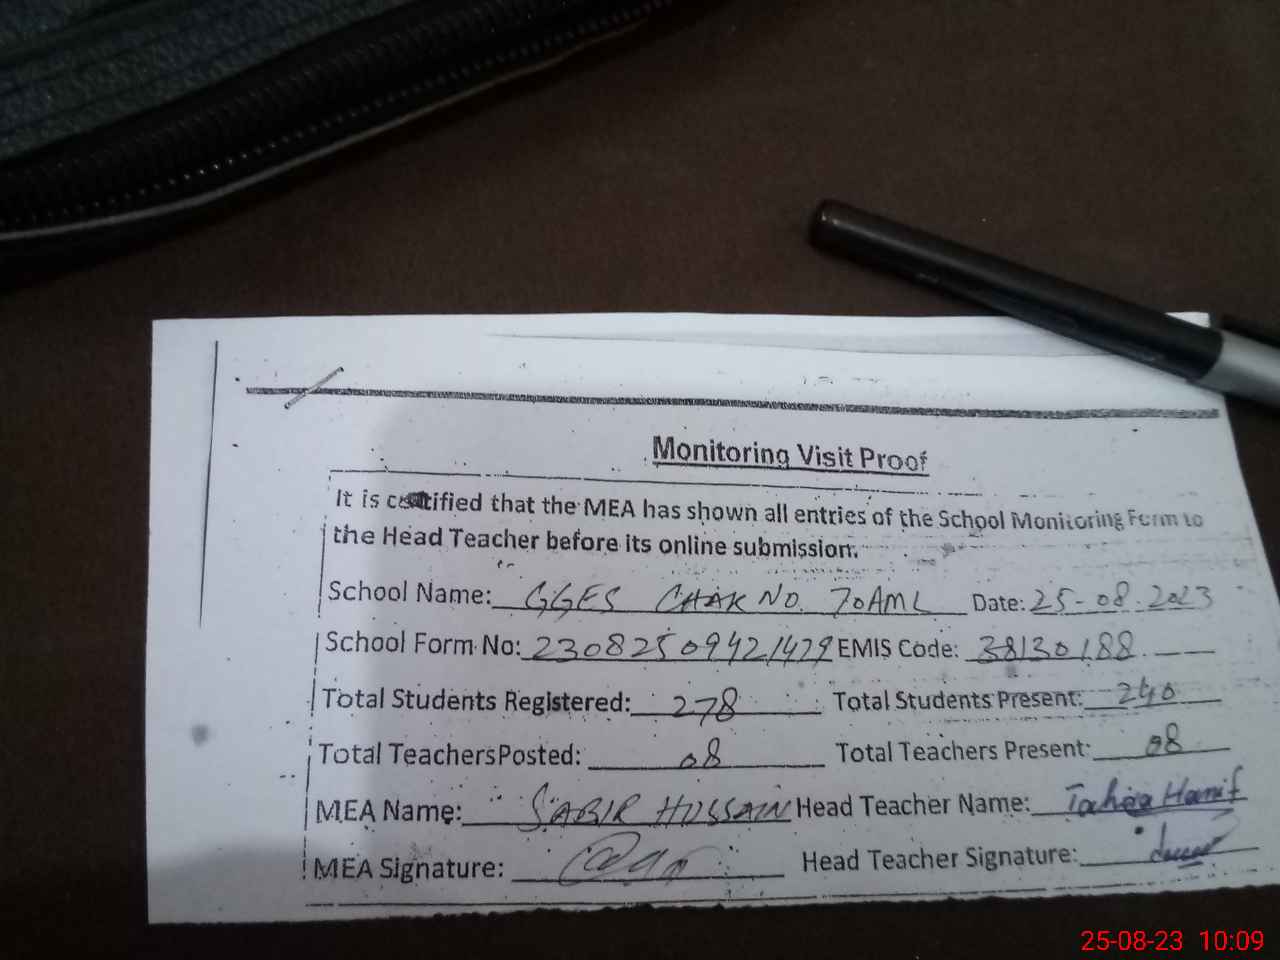 Monitoring Visit Proof
It is certified that the MEA has shown all entries of the School Monitoring Form to
the Head Teacher before its online submission.
School Name: GGES CHAK NO. 70AML Date: 25-08-2023
School Form No: 23082509421479 EMIS Code: 38130188
Total Students Registered: 278 Total Students Present: 240
Total Teachers Posted: 08 Total Teachers Present: 08
MEA Name: SABIR HUSSAIN Head Teacher Name: Hanif
MEA Signature: Head Teacher Signature:
25-08-23 10:09